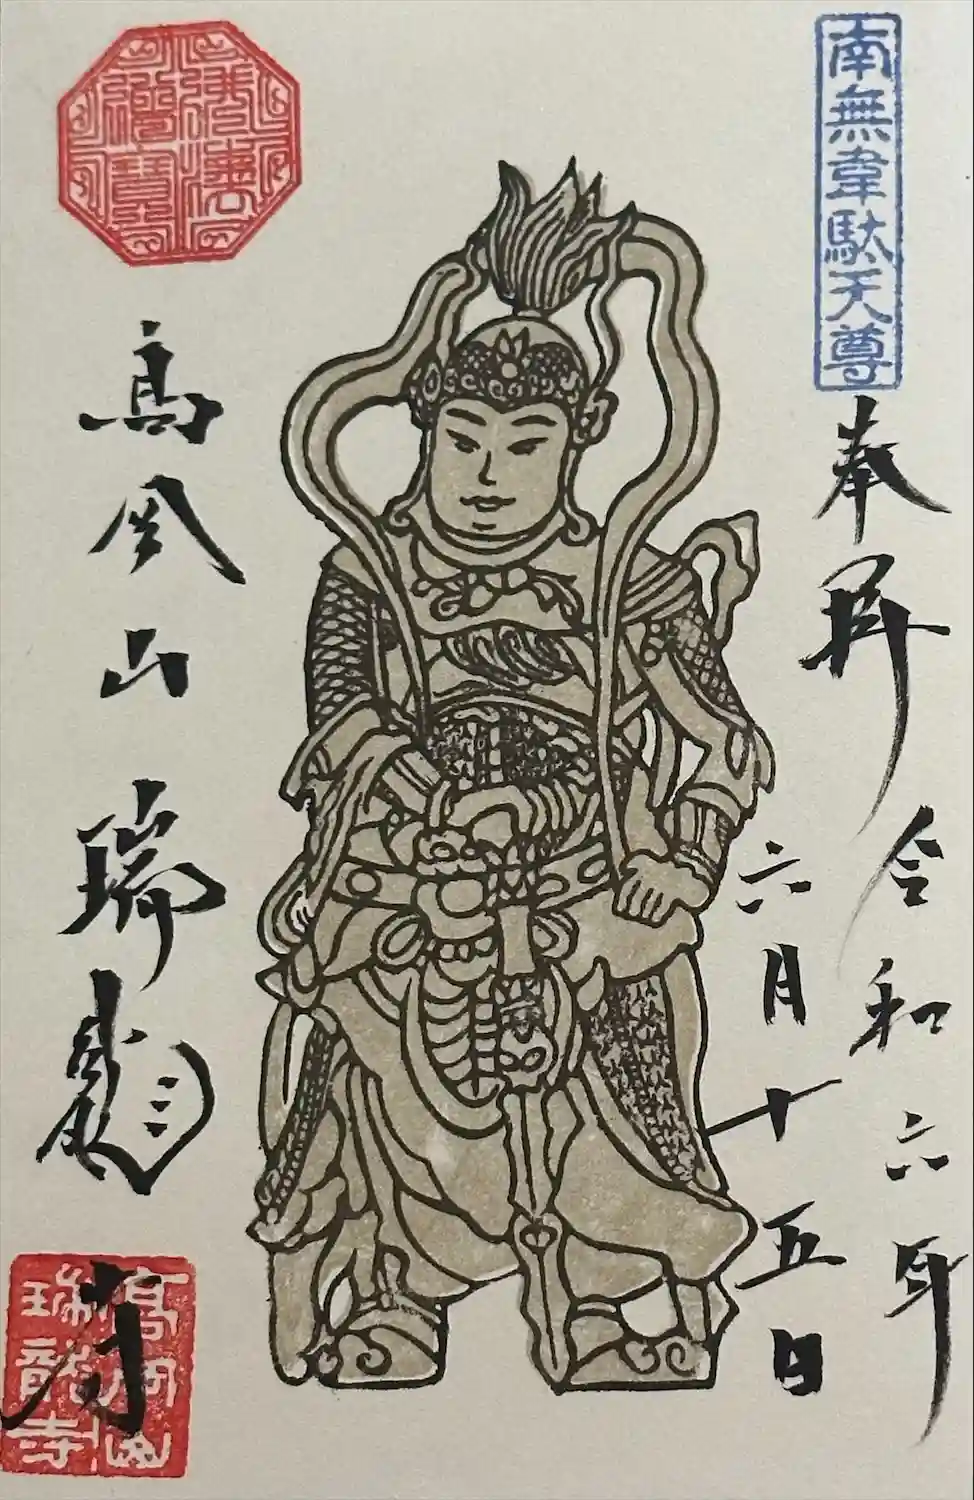 南無韋駄天尊
奉拝
令和六年
六月十五日
高岡山瑞龍寺
佛法僧寶
高岡山
瑞龍寺